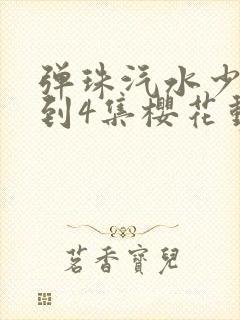 弹珠汽水少
到4集樱花
茗香寶兒